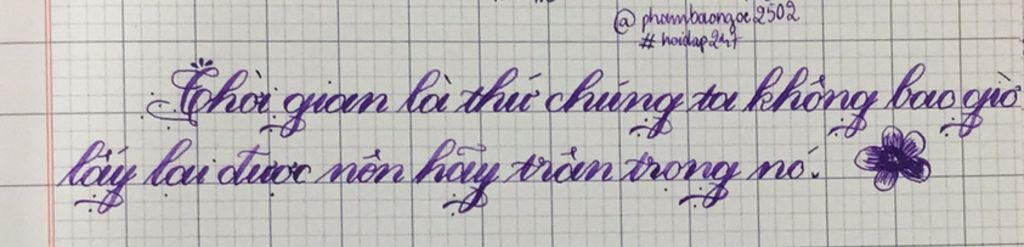 @phambaongoc2502
#hoidap247
Thời gian là thứ chúng ta không bao giờ
lấy lại được nên hãy trân trọng nó.